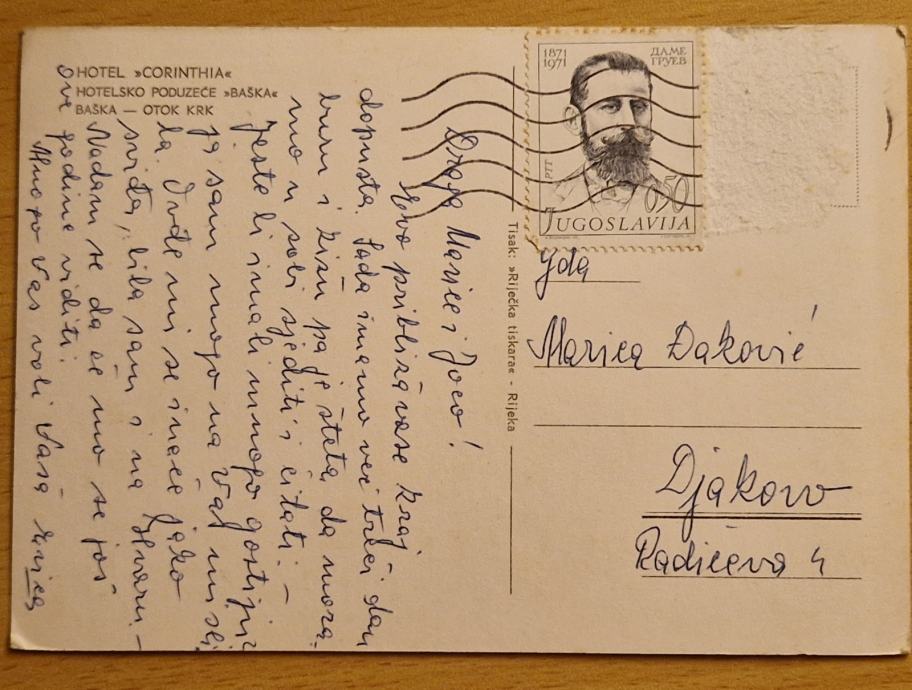 HOTEL »CORINTHIA«
HOTELSKO PODUZEĆE »BAŠKA«
BAŠKA — OTOK KRK
Draga Marice i Joco!
Evo približava se kraj
dopusta. Sada imamo već treći dan
buru i kišu pa je šteta da mora-
mo u sobi sjediti i čitati. –
Jeste li imali mnogo gostiju?
ja sam mnogo na Vas misli
la. Ovdje mi se inače jako
sviđa, bila sam i na Hvaru. –
Nadam se da će mo se još
ove godine viditi.
Mnogo Vas voli Vaša
Tisak: »Riječka tiskara« - Rijeka
1871
1971
ДАМЕ
ГРУЕВ
PTT
0,50
JUGOSLAVIJA
gđa
Marica Đaković
Djakovo
Radićeva 4